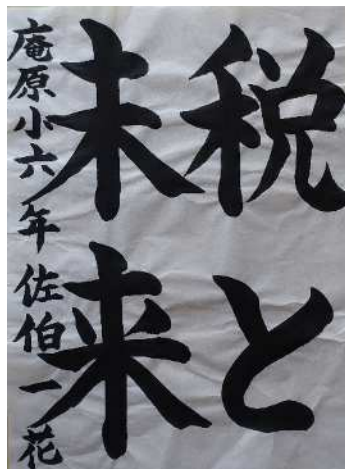 税と
未来
庵原小六年佐伯一花